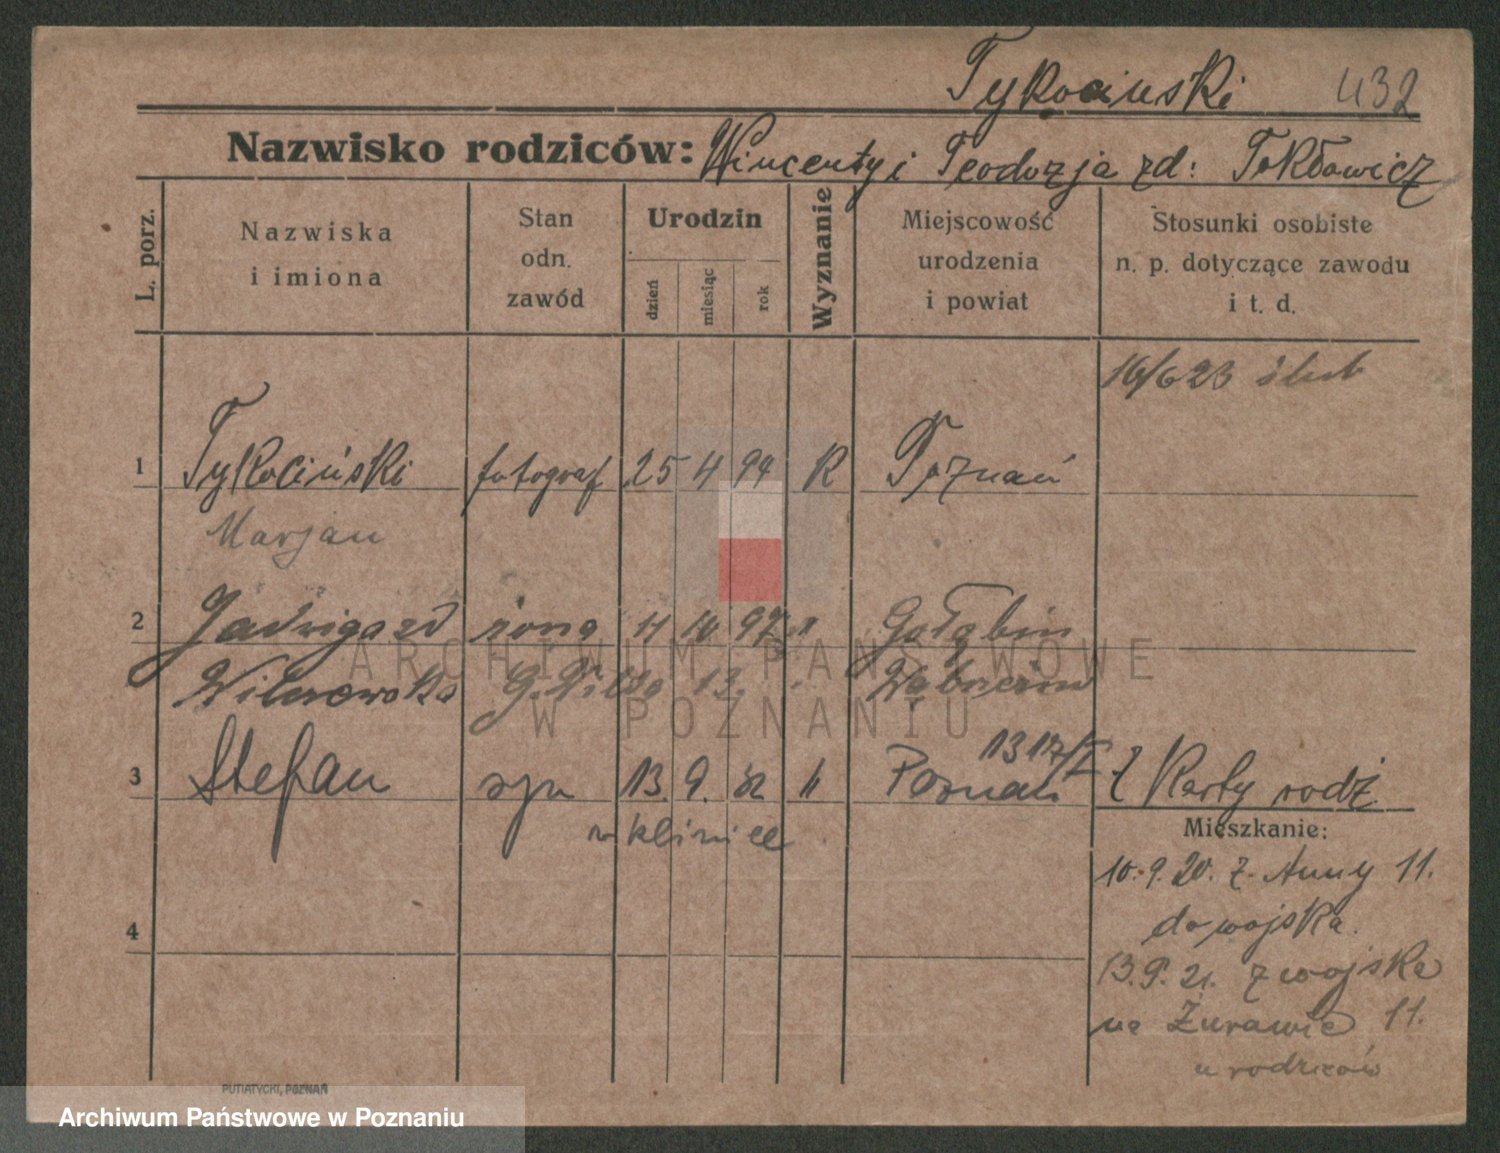 Tykocinski 432
Nazwisko rodziców: Wincenty i Teodozja zd:
L. porz.
Nazwiska
i imiona
Stan
odn.
zawód
Urodzin
dzień
miesiąc
rok
Wyznanie
Miejscowość
urodzenia
i powiat
Stosunki osobiste
n. p. dotyczące zawodu
i t. d.
16/6 23 ślub
1 Tykociński fotograf 25 4 94 R Poznań
Marjan
2 Jadwiga zd żona 11 10 97 " Gołębin
13.
3 Stefan syn 13. 9. " Poznań
w klinice
Z Karty rodz
Mieszkanie:
10. 9. 20. z. Anny 11.
do wojska.
13. 9. 21. z wojska
na Żurawie 11.
u rodziców
4
ARCHIWUM PAŃSTWOWE
W POZNANIU
PUTIATYCKI, POZNAŃ
Archiwum Państwowe w Poznaniu